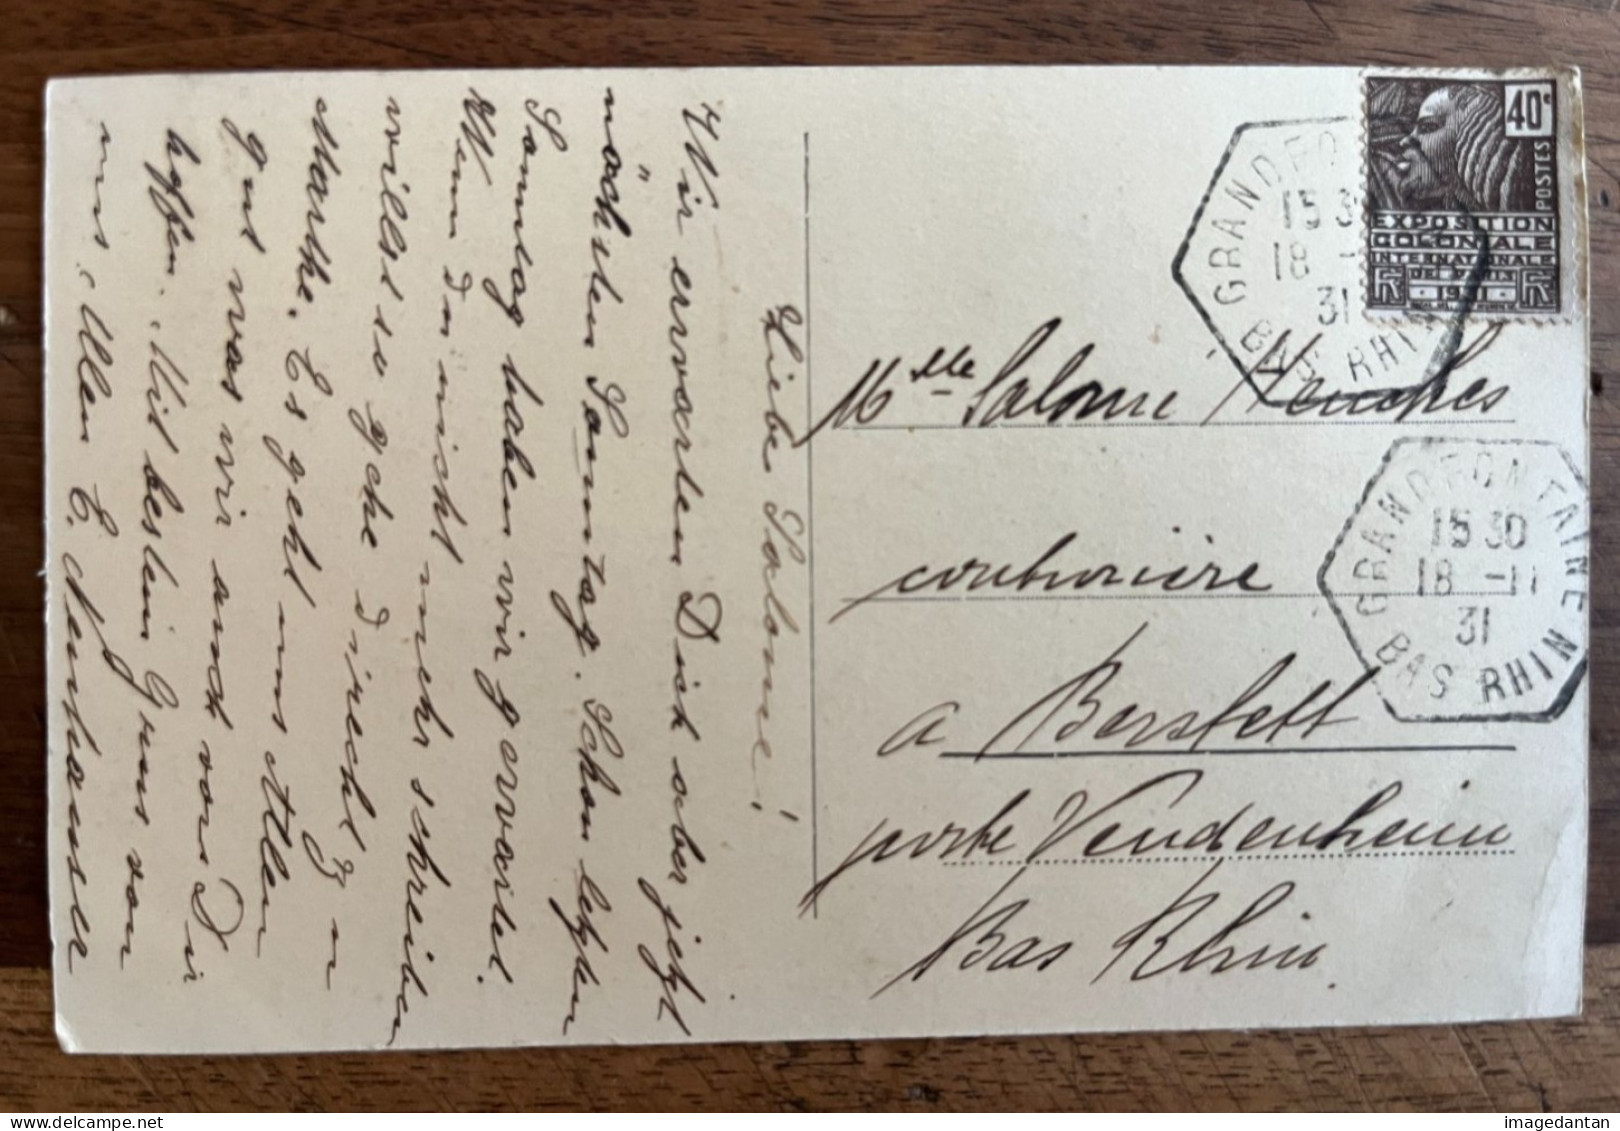 Liebe Salome!
Wir erwarten Dich aber jetzt
nächsten Sonntag. Schon letzten
Sonndag haben wir gerwartet.
Wenn Du nicht mehr schreiben
willst so gehe direckt zu
Marthe. Es geht uns Allen
gut was wir auch von Dir
hoffen. Mit besten Gruss von
uns Allen E. Neuhauser
40c
POSTES
EXPOSITION
COLONIALE
INTERNATIONALE
DE PARIS
1931
RF RF
GRANDFO
15 3
18 -
31
BAS RHIN
Mlle Salome
couturière
a Berstett
poste Vendenheim
Bas Rhin.
GRANDFONTAINE
15 30
18 -11
31
BAS RHIN
imagedantan